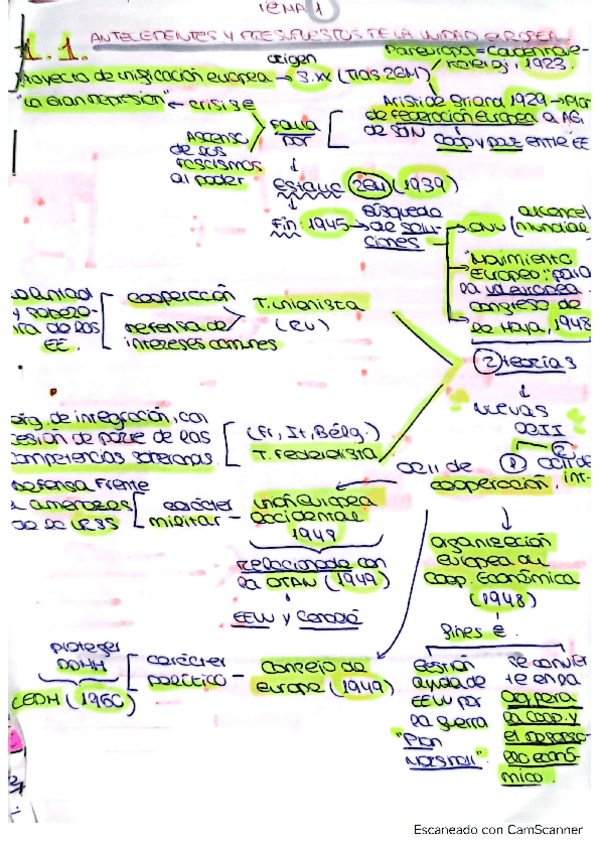 TEMA 1
1.1. ANTECEDENTES Y PRESUPUESTOS DE LA UNIDAD EUROPEA.
origen
Paneuropa = Coudenhove-
1923.
Proyecto de unificación europea → S.XX (TRAS 2GM)
"La Gran Depresión" ← crisis e
Aristide Briand 1929 → Plan
de Federación europea a AG
de SDN
Coop y paz entre EE
Falla
por
Ascenso
de los
fascismos
al poder
Estalle 2GM (1939)
Fin: 1945 → Búsqueda
de solu-
ciones
ONU (alcance
mundial
"Movimiento
Europeo": para
la ud europea
congreso de
La Haya, 1948
voluntad
y sobera-
nía de los
EE.
cooperación
defensa de
intereses comunes
T. unionista
(RU)
2 teorías
↓
nuevas
OOII
org. de integración, con
cesión de parte de las
competencias soberanas
(Fr, It, Bélg.)
T. Federalista
OOII de
cooperación.
1
2
OOII de
int-
Defensa frente
a amenazas
de la URSS
carácter
militar –
Unión europea
occidental
1948
Relacionada con
la OTAN (1949)
EEUU y Canadá
Organización
europea de
Coop. Económica
(1948)
fines e.
proteger
DDHH
CEDH (1950)
carácter
político –
Consejo de
europa (1949)
Gestión
ayuda de
EEUU por
la guerra
"Plan
Marshall".
se convier
te en la
la coop. y
el desarro-
llo econó-
mico.
Escaneado con CamScanner